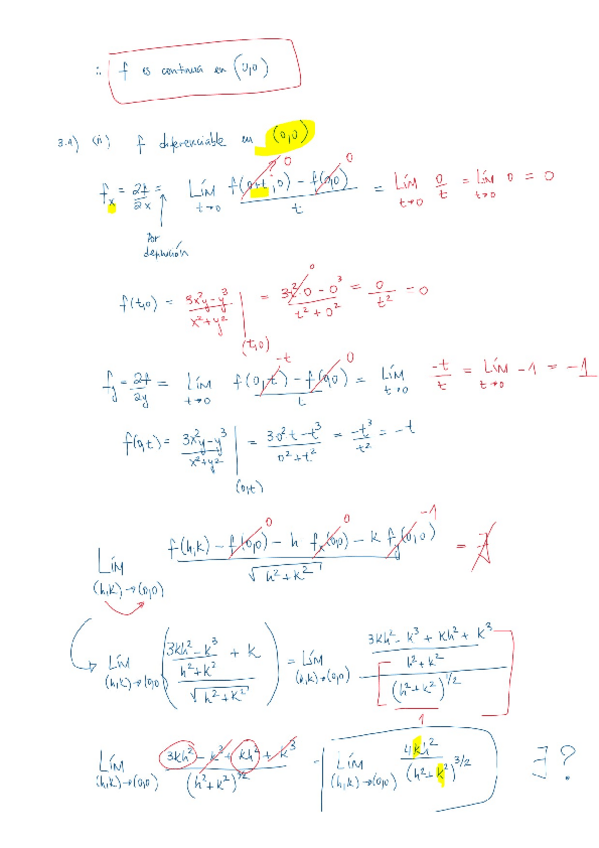 ∴ f es continua en (0,0)
3.4) (ii) f diferenciable en (0,0)
f_x = ∂f/∂x = Lím_{t→0} (f(0+t,0) - f(0,0))/t = Lím_{t→0} 0/t = Lím_{t→0} 0 = 0
0 0
Por
definición
f(t,0) = (3x²y-y³)/(x²+y²) |_(t,0) = (3t²·0 - 0³)/(t²+0²) = 0/t² = 0
0
f_y = ∂f/∂y = Lím_{t→0} (f(0,t) - f(0,0))/t = Lím_{t→0} -t/t = Lím_{t→0} -1 = -1
-t 0
f(0,t) = (3x²y-y³)/(x²+y²) |_(0,t) = (3·0²·t - t³)/(0²+t²) = -t³/t² = -t
Lím_{(h,k)→(0,0)} (f(h,k) - f(0,0) - h f_x(0,0) - k f_y(0,0))/√(h²+k²) =
0 0 -1
Lím_{(h,k)→(0,0)} ((3kh²-k³)/(h²+k²) + k)/√(h²+k²) = Lím_{(h,k)→(0,0)} ((3kh² - k³ + kh² + k³)/(h²+k²))/((h²+k²)^{1/2})
1
Lím_{(h,k)→(0,0)} (3kh² - k³ + kh² + k³)/(h²+k²)^{3/2} = Lím_{(h,k)→(0,0)} 4kh²/(h²+k²)^{3/2} ∃?